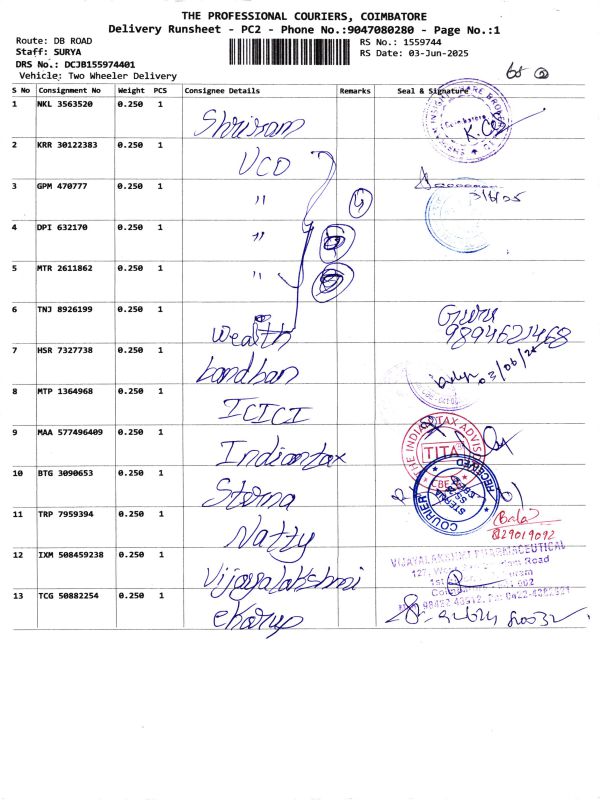 THE PROFESSIONAL COURIERS, COIMBATORE
Delivery Runsheet - PC2 - Phone No.:9047080280 - Page No.:1
Route: DB ROAD
RS No.: 1559744
Staff: SURYA
RS Date: 03-Jun-2025
DRS No.: DCJB155974401
Vehicle: Two Wheeler Delivery
S No Consignment No Weight PCS Consignee Details Remarks Seal & Signature
1 NKL 3563520 0.250 1 Shriram
2 KRR 30122383 0.250 1 UCO
3 GPM 470777 0.250 1 " 4 3/6/25
4 DPI 632170 0.250 1 "
5 MTR 2611862 0.250 1 "
6 TNJ 8926199 0.250 1 Wealth Guru 9894621468
7 HSR 7327738 0.250 1 bandhan 03/06/25
8 MTP 1364968 0.250 1 ICICI
9 MAA 577496409 0.250 1 Indiantax THE INDIAN TAX ADVIS TITA
10 BTG 3090653 0.250 1 Sterna COURIER RECEIVED
11 TRP 7959394 0.250 1 Natty Bala 8129019092
12 IXM 508459238 0.250 1 Vijayalakshmi VIJAYALAKSHMI PHARMACEUTICAL
13 TCG 50882254 0.250 1 ekarup